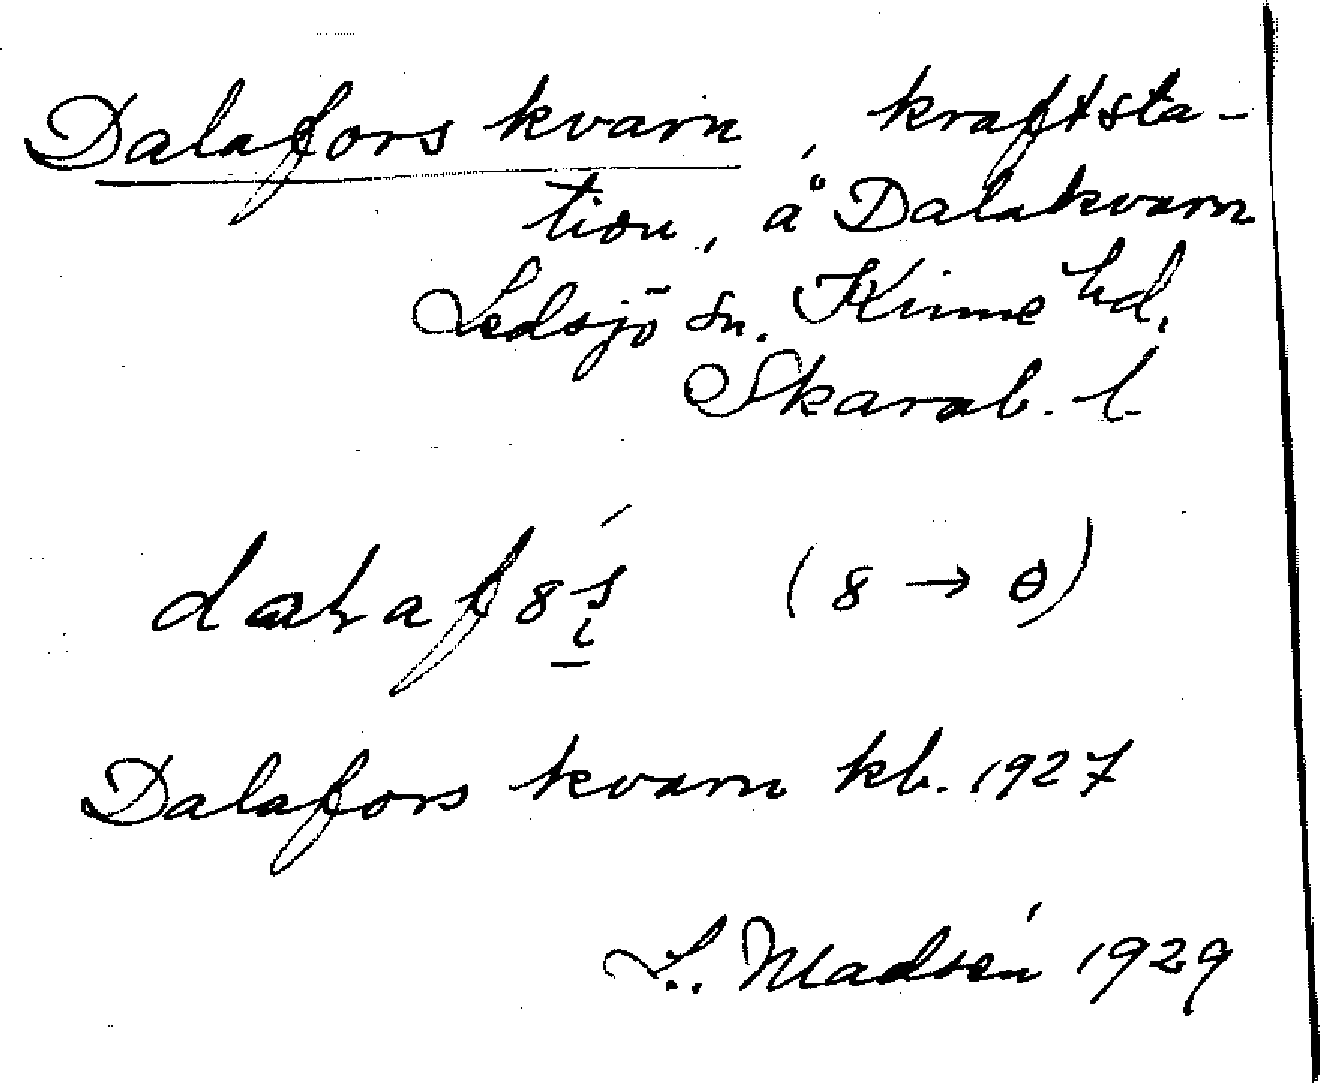 Dalafors kvarn, kraftsta-
tion, å Dalakvarn
Ledsjö sn. Kinne hd,
Skarab. l.
(8 → θ)
Dalafors kvarn kb. 1927
L. Madsén 1929